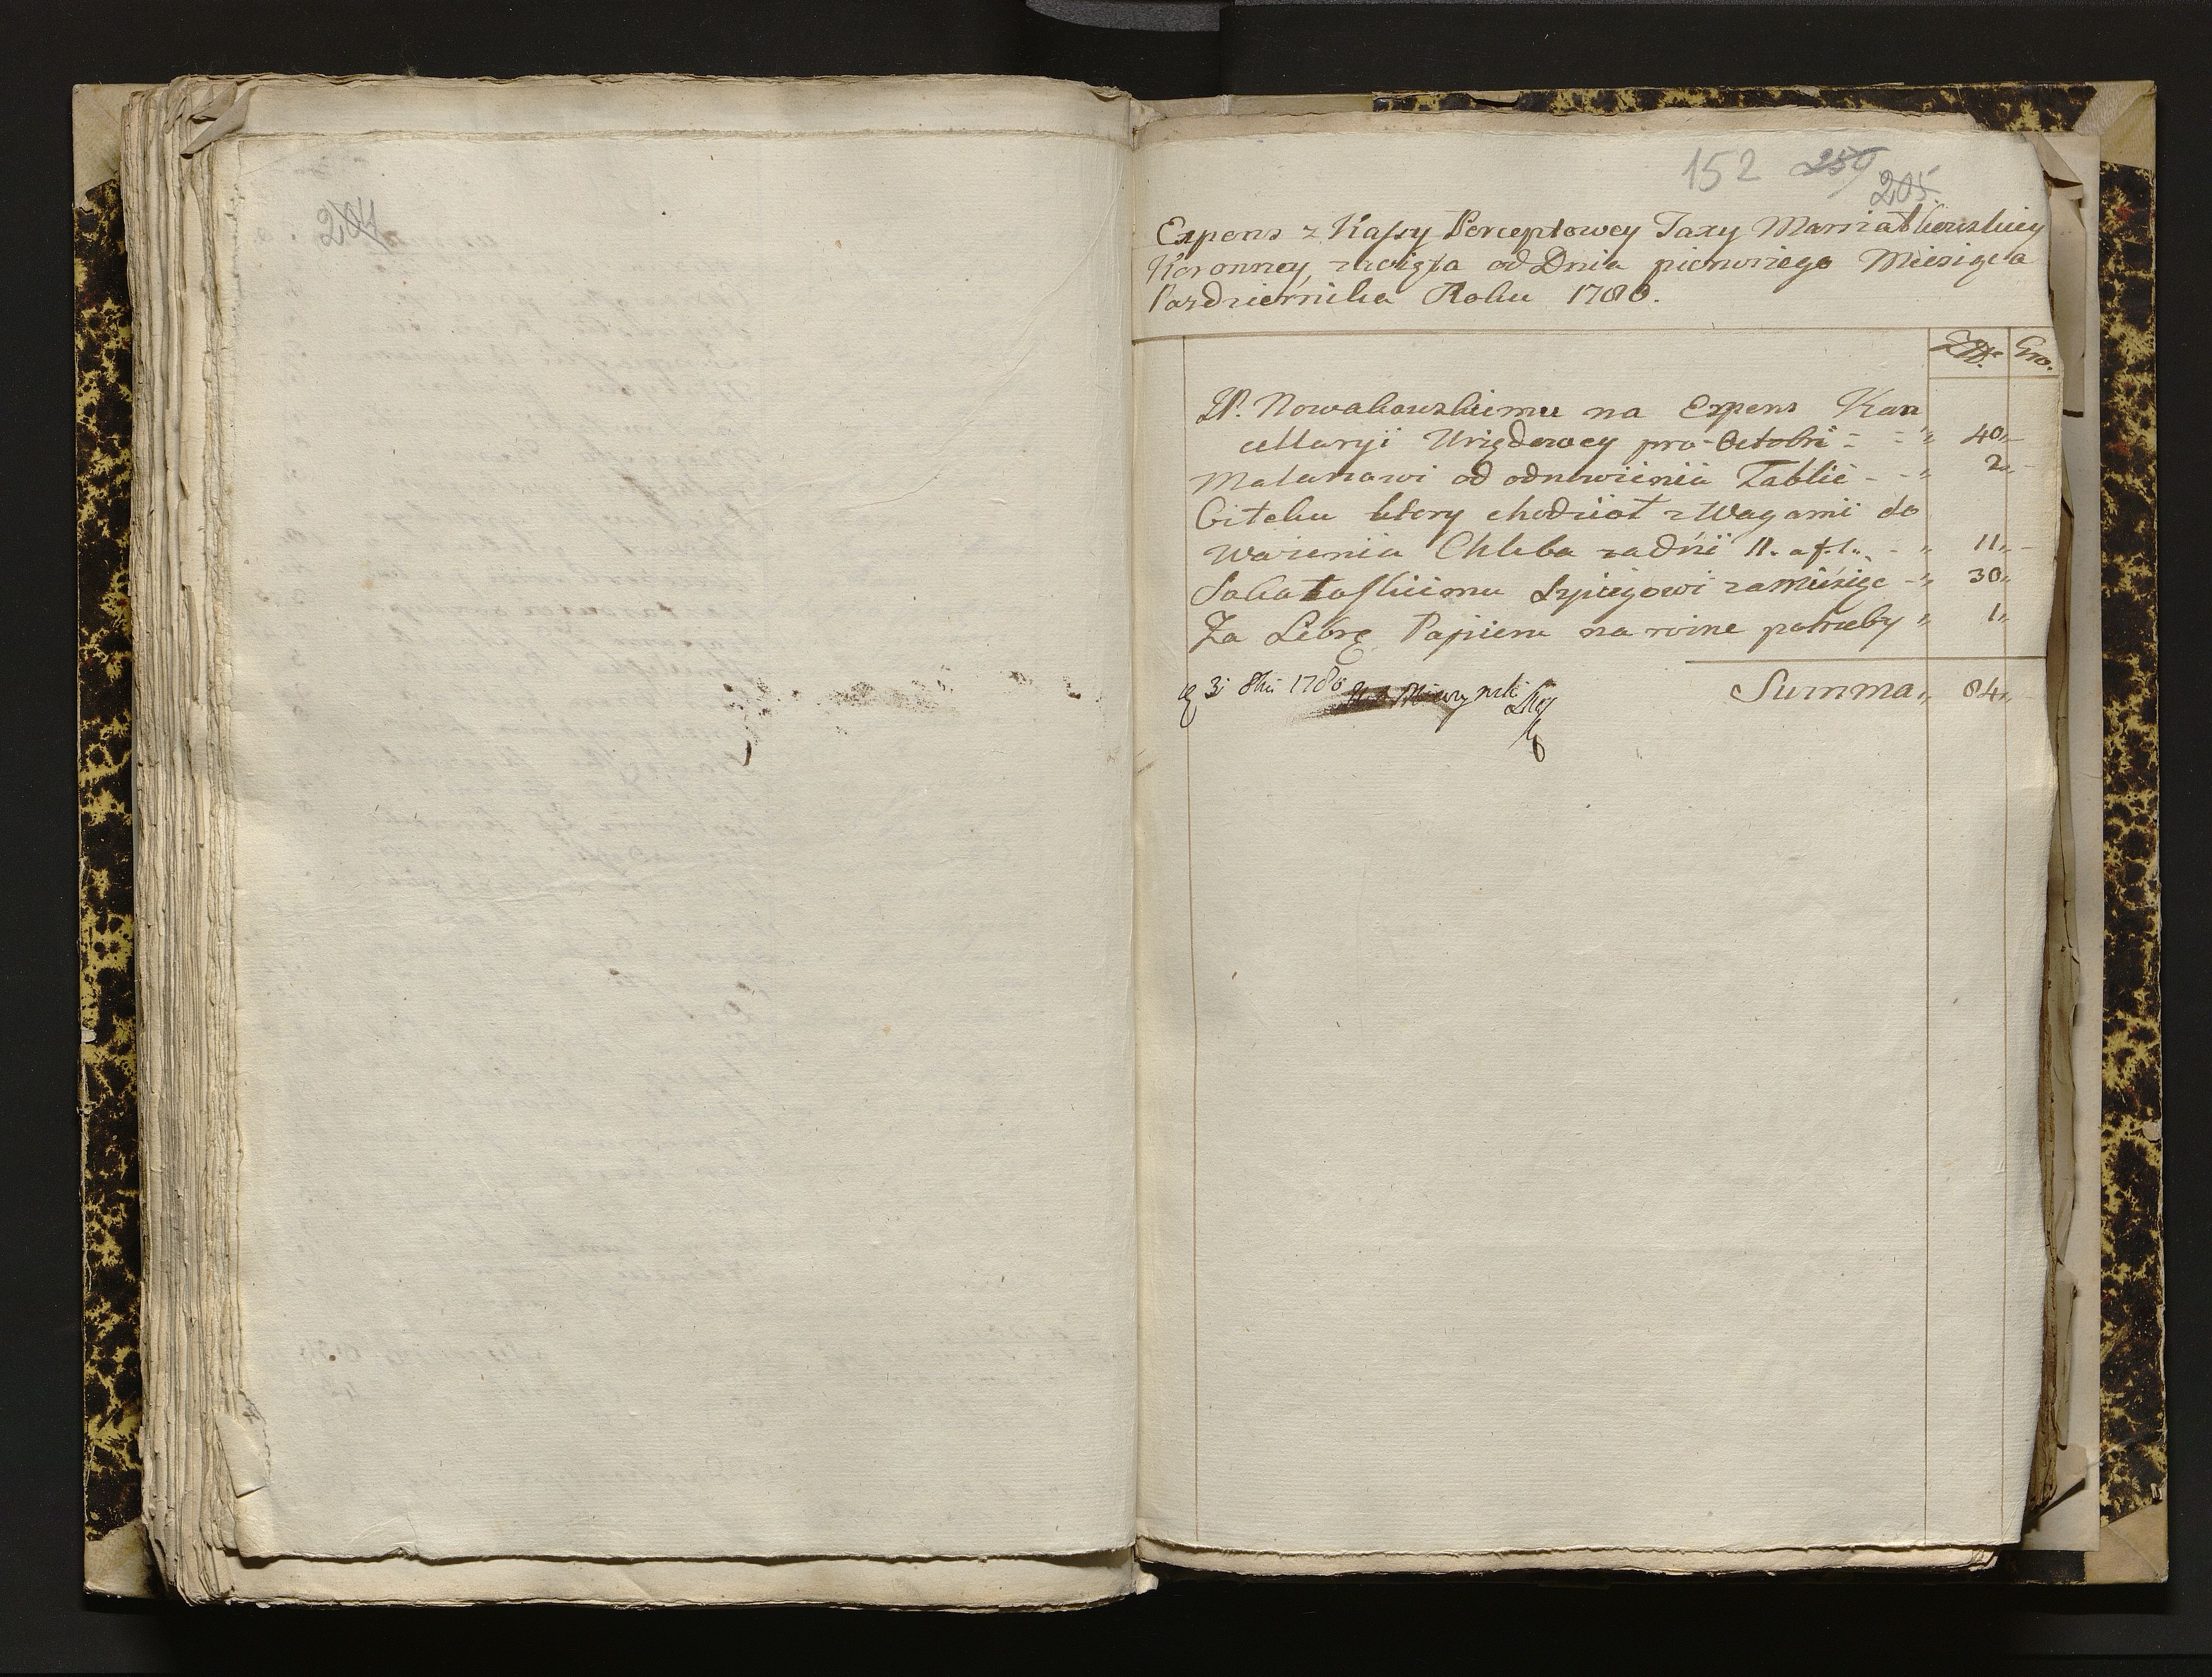 204
152 250 205
Expens z Kassy Perceptowey Taxy Marszałkowskiey
Koronney, zacięta od Dnia pierwszego Miesiąca
Pazdziernika Roku 1780.
Złłt. Gro.
JP. Nowakowskiemu na Expens Kan
cellaryi Urzędowey pro Octobri = = " 40 " –
Malarzowi od odnowienia Tablic - - " 2 " –
Citeku ktory chodził z Wagami do
Ważenia Chleba za dni 11. a f. 1. - " 11 " –
Szpiegowi za Miesiąc - " 30 "
Za Librę Papieru na rożne potrzeby " 1 "
3 8bris 1780 Summa " 84 "